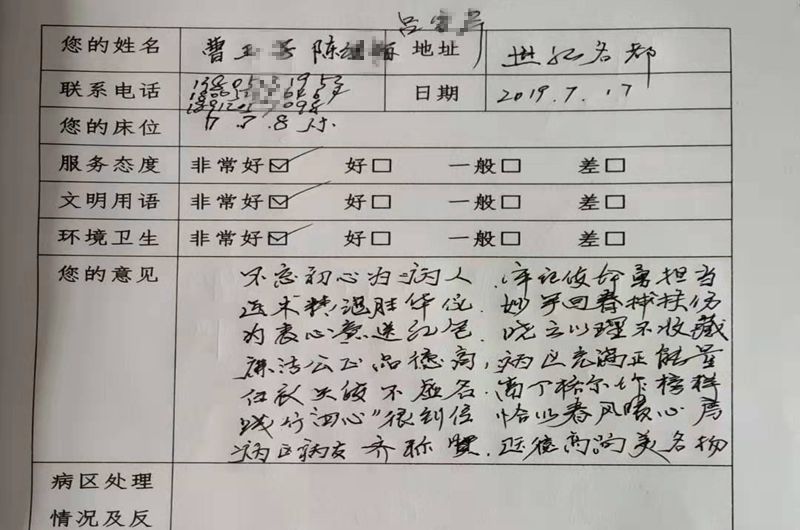 您的姓名 曹玉 陈 吕 地址 世纪名都
联系电话 日期 2019.7.17
您的床位 7.8床
服务态度 非常好☑ 好□ 一般□ 差□
文明用语 非常好☑ 好□ 一般□ 差□
环境卫生 非常好☑ 好□ 一般□ 差□
您的意见 不忘初心为病人,牢记使命勇担当
医术精湛胜华佗,妙手回春神扶伤
为表心意送红包,晓之以理不收藏
廉洁公正品德高,病区充满正能量
白衣天使不虚名,南丁格尔作榜样
践行"四心"很到位,恰似春风暖心房
病区病友齐称赞,医德高尚美名扬
病区处理
情况及反